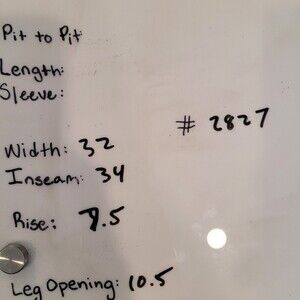 Pit to Pit
Length:
Sleeve:
# 2827
Width: 32
Inseam: 34
Rise: 9.5
Leg Opening: 10.5